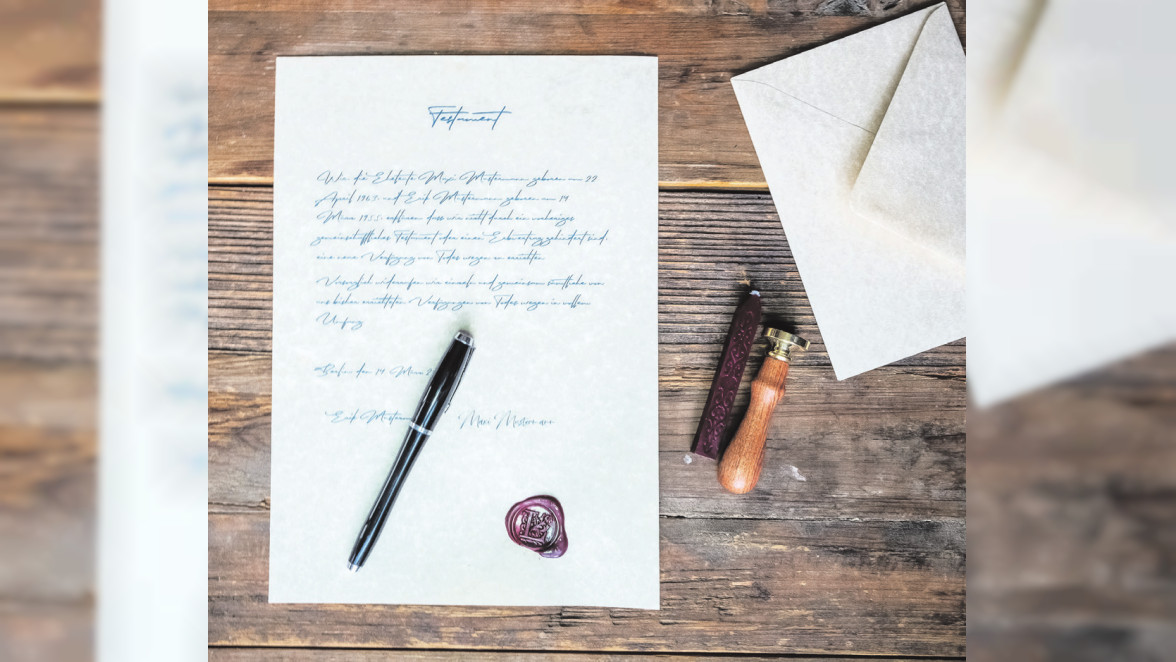 Testament
Wir die Eheleute Maxi Mustermann geboren am 22
April 1963 und Erik Mustermann geboren am 14
März 1955 erklären, dass wir nicht durch ein vorheriges
gemeinschaftliches Testament oder einen Erbvertrag gehindert sind,
eine neue Verfügung von Todes wegen zu errichten.
Vorsorglich widerrufen wir einzeln und gemeinsam von
uns bisher errichteten Verfügungen von Todes wegen in vollem
Umfang
Berlin den 14. März
Erik Maxi